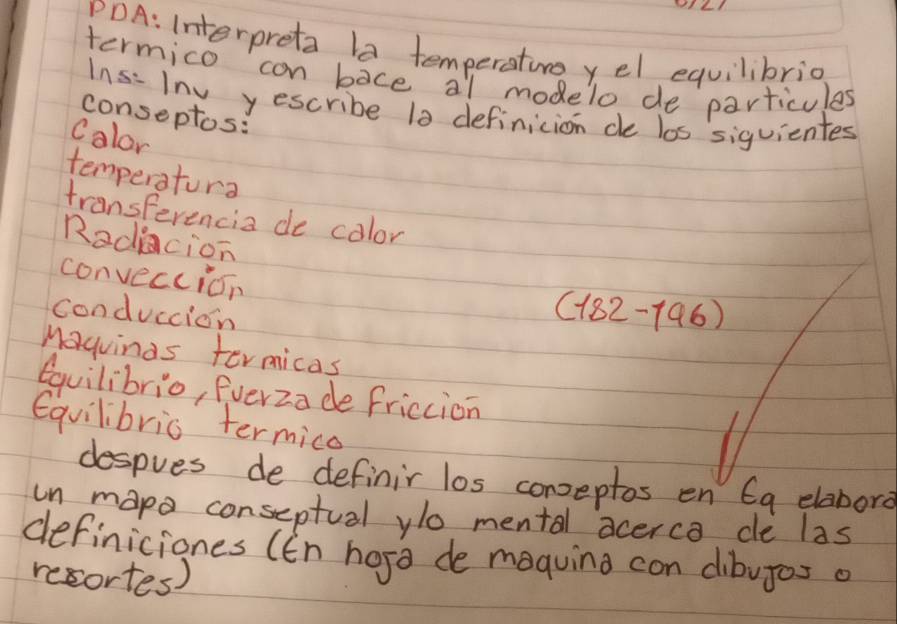 PDA: Interpreta la temperatura y el equilibrio
termico con bace al modelo de particulas
Ins: Inv y escribe la definición de los siguientes
conseptos:
Calor
temperatura
transferencia de calor
Radiacion
convección
conducción
Maquinas termicas
Equilibrio, fuerza de fricción
Equilibrio termico
(182-196)
despues de definir los conseptos en Eq elabora
un mapa conseptual y/o mental acerca de las
definiciones (En hoja de maquina con dibujos o
resortes)